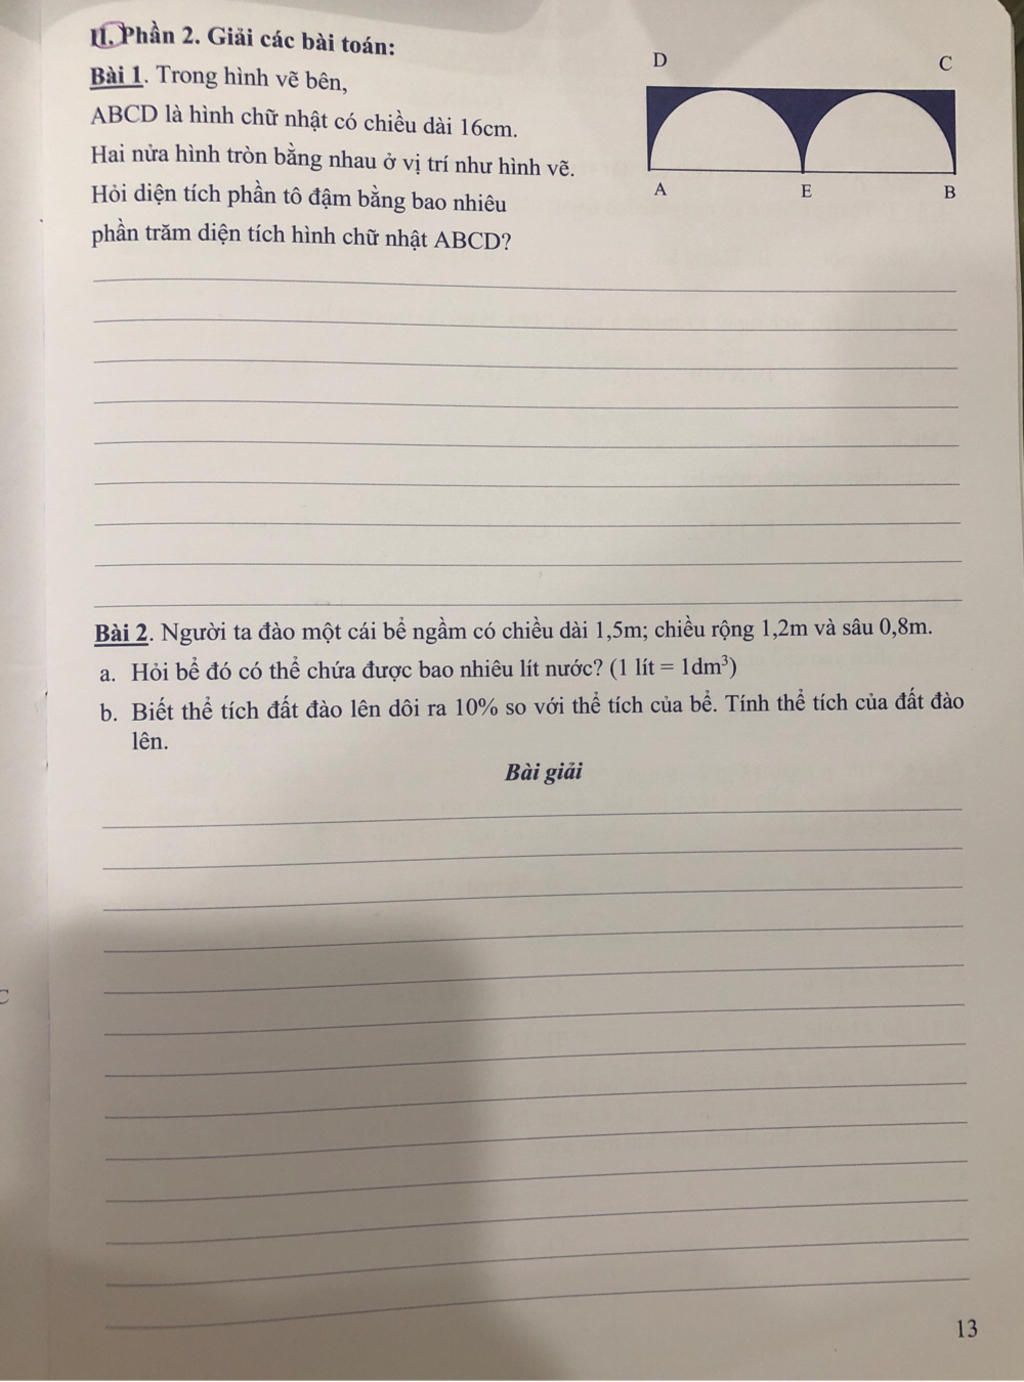 II. Phần 2. Giải các bài toán:
Bài 1. Trong hình vẽ bên,
ABCD là hình chữ nhật có chiều dài 16cm.
Hai nửa hình tròn bằng nhau ở vị trí như hình vẽ.
Hỏi diện tích phần tô đậm bằng bao nhiêu
phần trăm diện tích hình chữ nhật ABCD?
D C
A E B
Bài 2. Người ta đào một cái bể ngầm có chiều dài 1,5m; chiều rộng 1,2m và sâu 0,8m.
a. Hỏi bể đó có thể chứa được bao nhiêu lít nước? (1 lít = 1dm³)
b. Biết thể tích đất đào lên dôi ra 10% so với thể tích của bể. Tính thể tích của đất đào
lên.
Bài giải
C
13